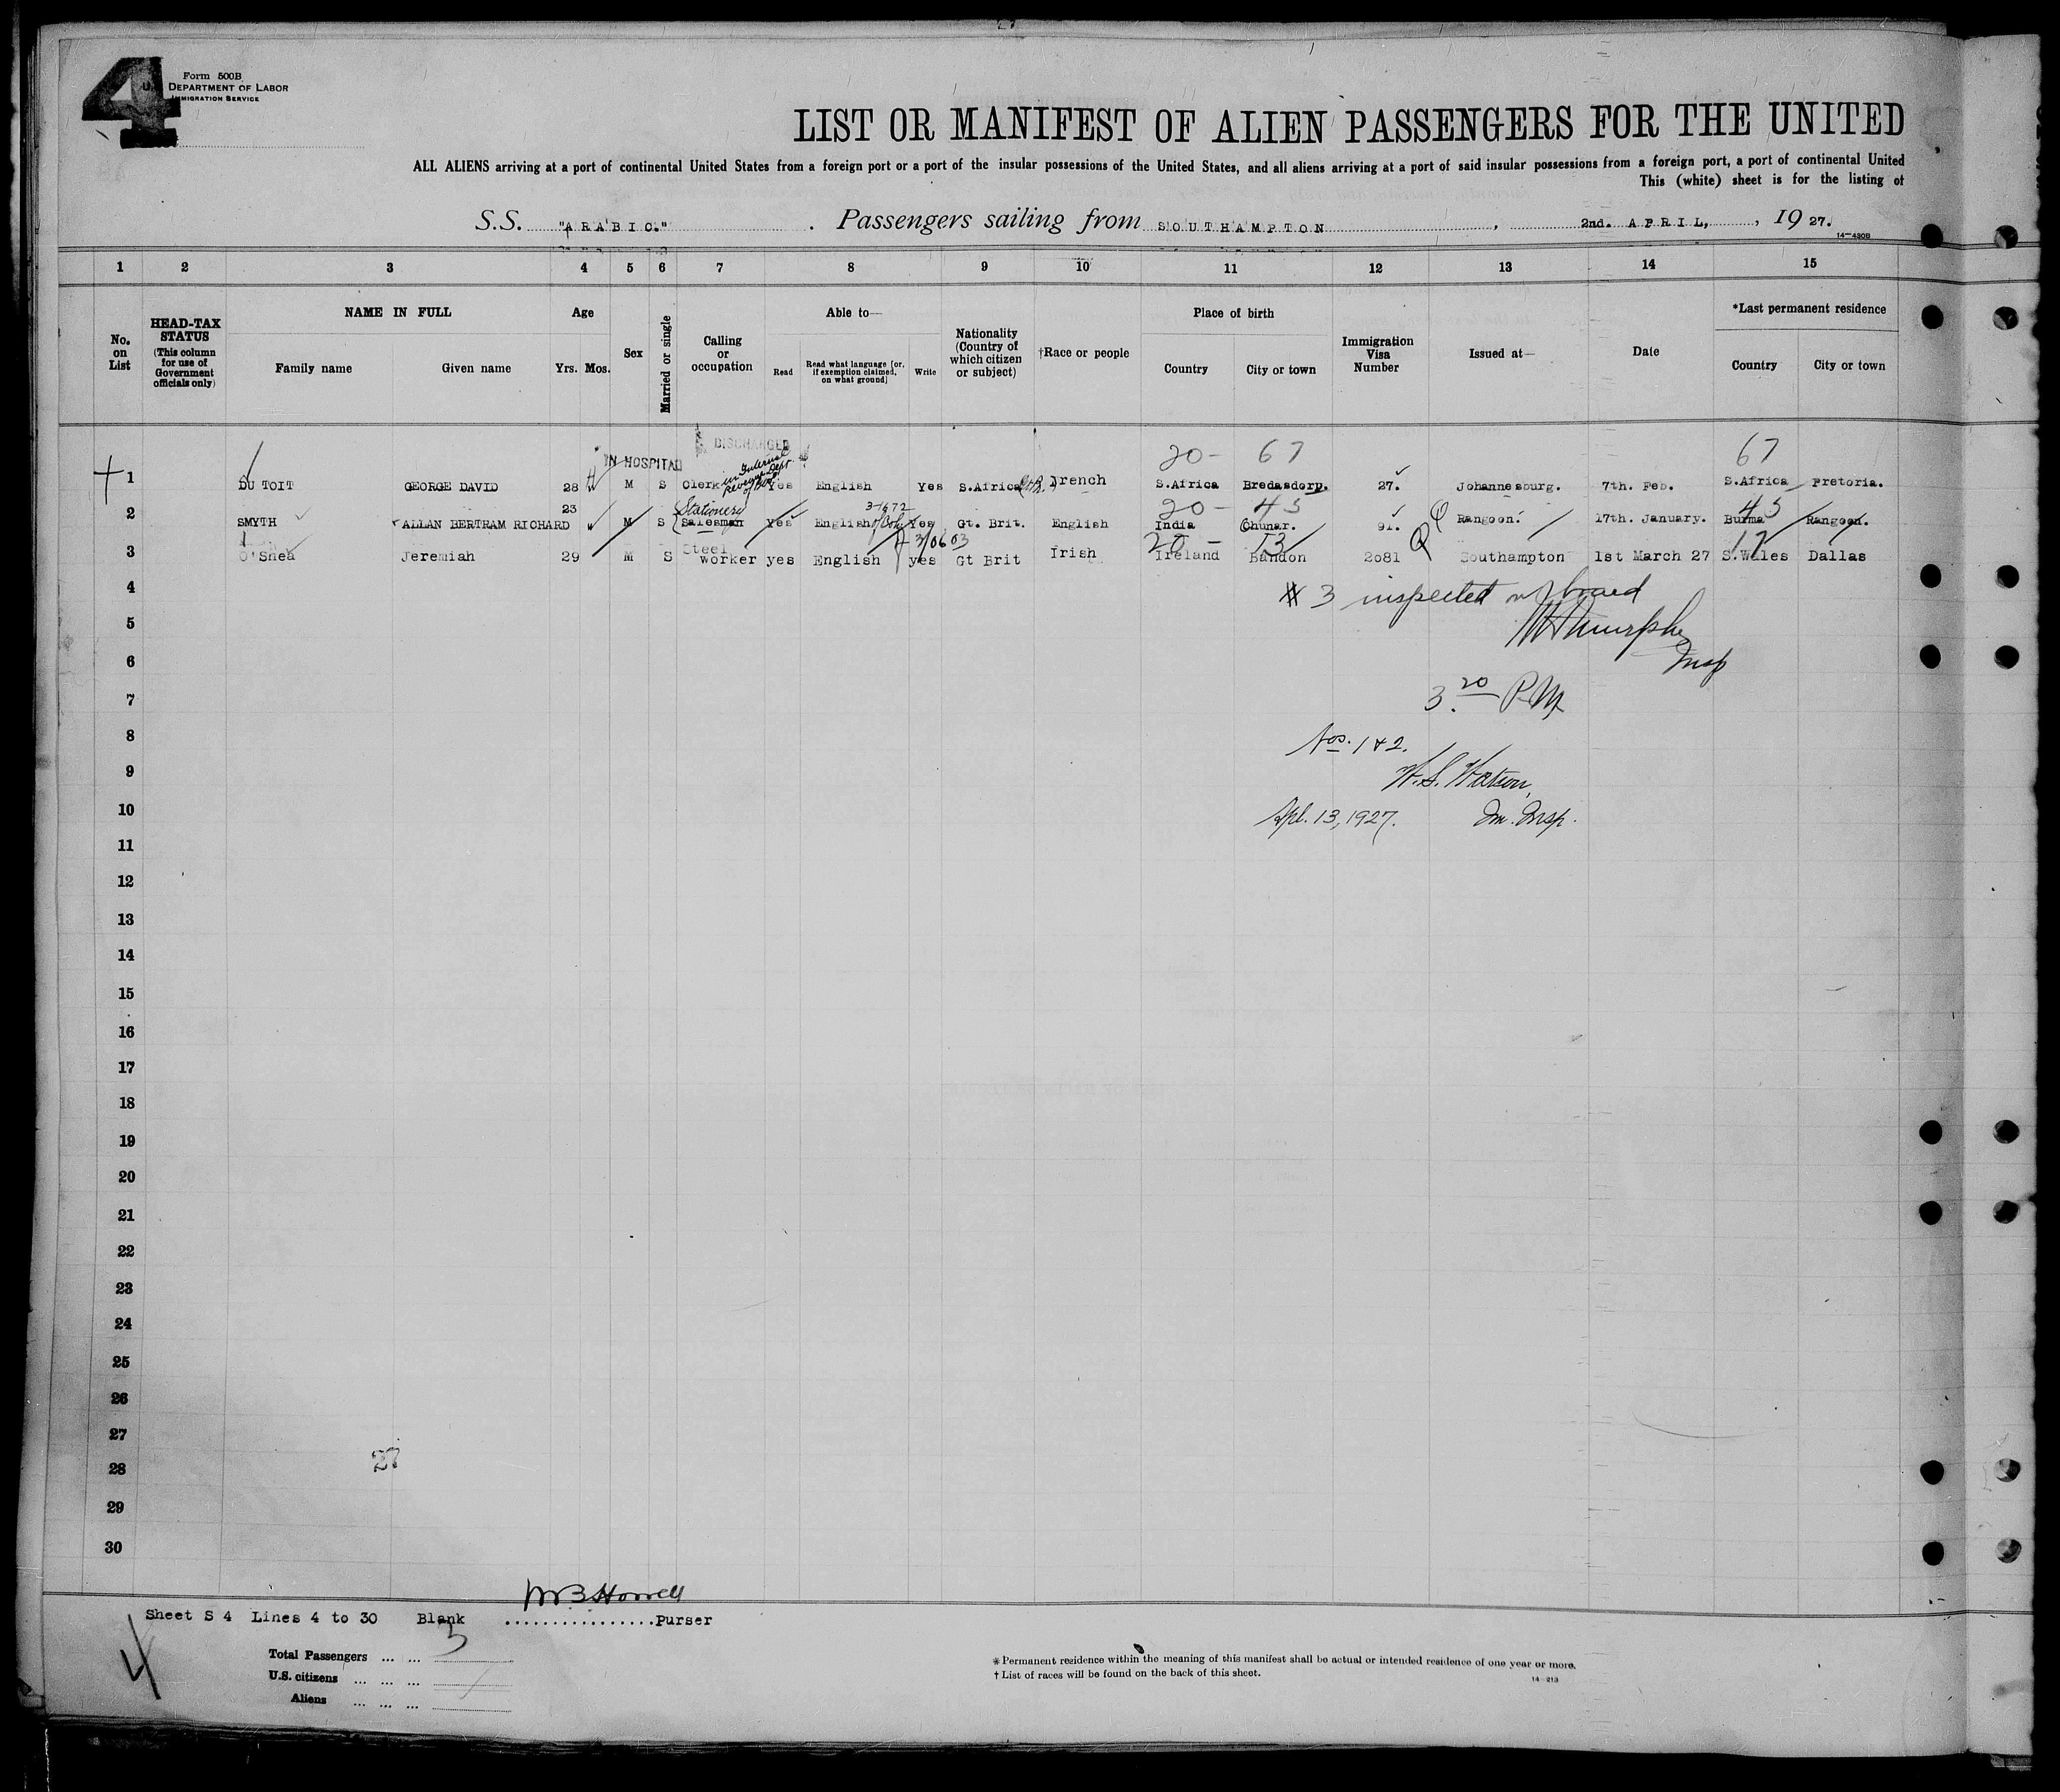 4
Form 500B
U.S. DEPARTMENT OF LABOR
IMMIGRATION SERVICE
LIST OR MANIFEST OF ALIEN PASSENGERS FOR THE UNITED
ALL ALIENS arriving at a port of continental United States from a foreign port or a port of the insular possessions of the United States, and all aliens arriving at a port of said insular possessions from a foreign port, a port of continental United
This (white) sheet is for the listing of
S.S. "ARABIC." Passengers sailing from SOUTHAMPTON, 2nd. APRIL, 1927.
14—430B
1 2 3 4 5 6 7 8 9 10 11 12 13 14 15
No. on List
HEAD-TAX STATUS (This column for use of Government officials only)
NAME IN FULL
Family name Given name
Age
Yrs. Mos.
Sex
Married or single
Calling or occupation
Able to—
Read
Read what language [or, if exemption claimed, on what ground]
Write
Nationality (Country of which citizen or subject)
†Race or people
Place of birth
Country City or town
Immigration Visa Number
Issued at—
Date
*Last permanent residence
Country City or town
DISCHARGED
IN HOSPITAL
in Internal Revenue Dept.
20- 67 67
1 DU TOIT GEORGE DAVID 28 M S Clerk Yes English Yes S.Africa French S.Africa Bredasdorp. 27. Johannesburg. 7th. Feb. S.Africa Pretoria.
Stationery 20- 45 45
2 SMYTH ALLAN BERTRAM RICHARD 23 M S Salesman Yes English Yes Gt. Brit. English India Chunar. 91. Rangoon. 17th. January. Burma Rangoon.
3/0603 20- 13 17
3 O'Shea Jeremiah 29 M S Steel worker yes English yes Gt Brit Irish Ireland Bandon 2081 Southampton 1st March 27 S.Wales Dallas
4
# 3 inspected on board
5
Murphy
6
Insp
7
3.20 P.M.
8
Nos. 1 & 2.
9
W.S. Watson,
10
Apl. 13, 1927. Im. Insp.
11
12
13
14
15
16
17
18
19
20
21
22
23
24
25
26
27
27
28
29
30
Sheet S 4 Lines 4 to 30 Blank ................Purser
4
3
Total Passengers ... ...
U.S. citizens ... ... ...
Aliens ... ... ...
*Permanent residence within the meaning of this manifest shall be actual or intended residence of one year or more.
†List of races will be found on the back of this sheet.
14—213